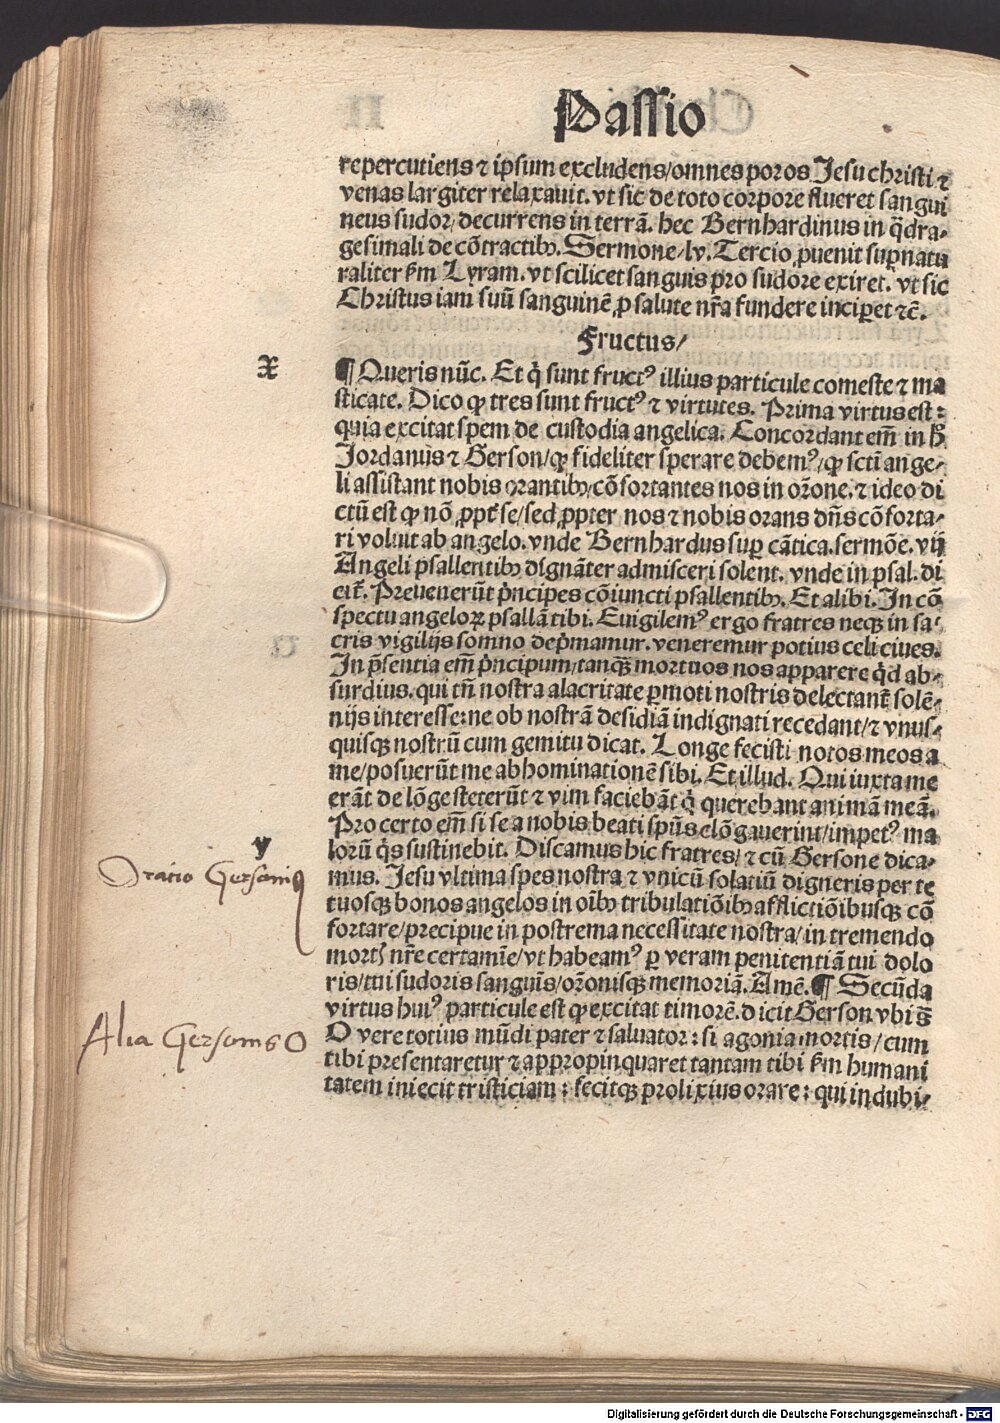 Passio
repercutiens ⁊ ipsum excludens/omnes poros Jesu christi ⁊
venas largiter relaxauit. vt sic de toto corpore flueret sangui
neus sudor/decurrens in terrã. hec Bernhardinus in q̃dra-
gesimali de cõtractibꝫ. Sermone/lv. Tercio ꝓuenit sup̱natu
raliter ẜm Lyram. vt scilicet sanguis pro sudore exiret. vt sic
Christus iam suũ sanguinẽ ꝓ salute nr̃a fundere inciperet ⁊c̃.
Fructus/
x
¶ Queris nũc. Et q̇ sunt fructꝰ illius particule comeste ⁊ ma
sticate. Dico ꝙ tres sunt fructꝰ ⁊ virtutes. Prima virtus est:
quia excitat spem de custodia angelica. Concordant em̃ in h̊
Jordanus ⁊ Gerson/ꝙ fideliter sperare debemꝰ/ꝙ scti ange-
li assistant nobis orantibꝫ/cõfortantes nos in or̃one. ⁊ ideo di
ctũ est ꝙ nõ ꝓpt̃ se/sed ꝓpter nos ⁊ nobis orans dñs cõforta-
ri voluit ab angelo. vnde Bernhardus suꝑ cãtica. sermõe. vij
Angeli psallentibꝫ dignãter admisceri solent. vnde in psal. di
cit̃. Preuenerũt p̃ncipes cõiuncti psallentibꝫ. Et alibi. In cõ
spectu angeloꝝ psallã tibi. Euigilemꝰ ergo fratres neqꝫ in sa-
cris vigilijs somno dep̃mamur. veneremur potius celi ciues.
In p̃sentia em̃ p̃ncipum/tanqꝫ mortuos nos apparere q̇d ab-
surdius. qui tñ nostra alacritate ꝑmoti nostris delectant̃ solẽ-
nijs interesse: ne ob nostrã desidiã indignati recedant/⁊ vnus-
quisqꝫ nostrũ cum gemitu dicat. Longe fecisti notos meos a
me/posuerũt me abhominationẽ sibi. Et illud. Qui iuxta me
erãt de lõge steterũt ⁊ vim faciebãt q̇ querebant animã meã.
Pro certo em̃ si se a nobis beati spũs elõgauerint/impetꝰ ma
lorũ q̇s sustinebit. Discamus hic fratres/ ⁊ cũ Gersone dica-
y
Oratio Gersonis
mus. Jesu vltima spes nostra ⁊ vnicũ solatiũ digneris per te
tuosqꝫ bonos angelos in oĩbꝫ tribulatiõibꝫ afflictiõibusqꝫ cõ
fortare/precipue in postrema necessitate nostra/in tremendo
mortꝭ nr̃e certamĩe/vt habeamꝰ ꝑ veram penitentiã tui dolo
ris/tui sudoris sanguĩs/or̃onisqꝫ memoriã. Amẽ. ¶ Secũda
virtus huiꝰ particule est ꝙ excitat timorẽ. dicit Gerson vbi s̃
Alia Gersonis O
O vere totius mũdi pater ⁊ saluator: si agonia mortis/cum
tibi presentaretur ⁊ appropinquaret tantam tibi ẜm humani
tatem iniecit tristiciam: fecitqꝫ prolixius orare: qui in dubi-
Digitalisierung gefördert durch die Deutsche Forschungsgemeinschaft - DFG